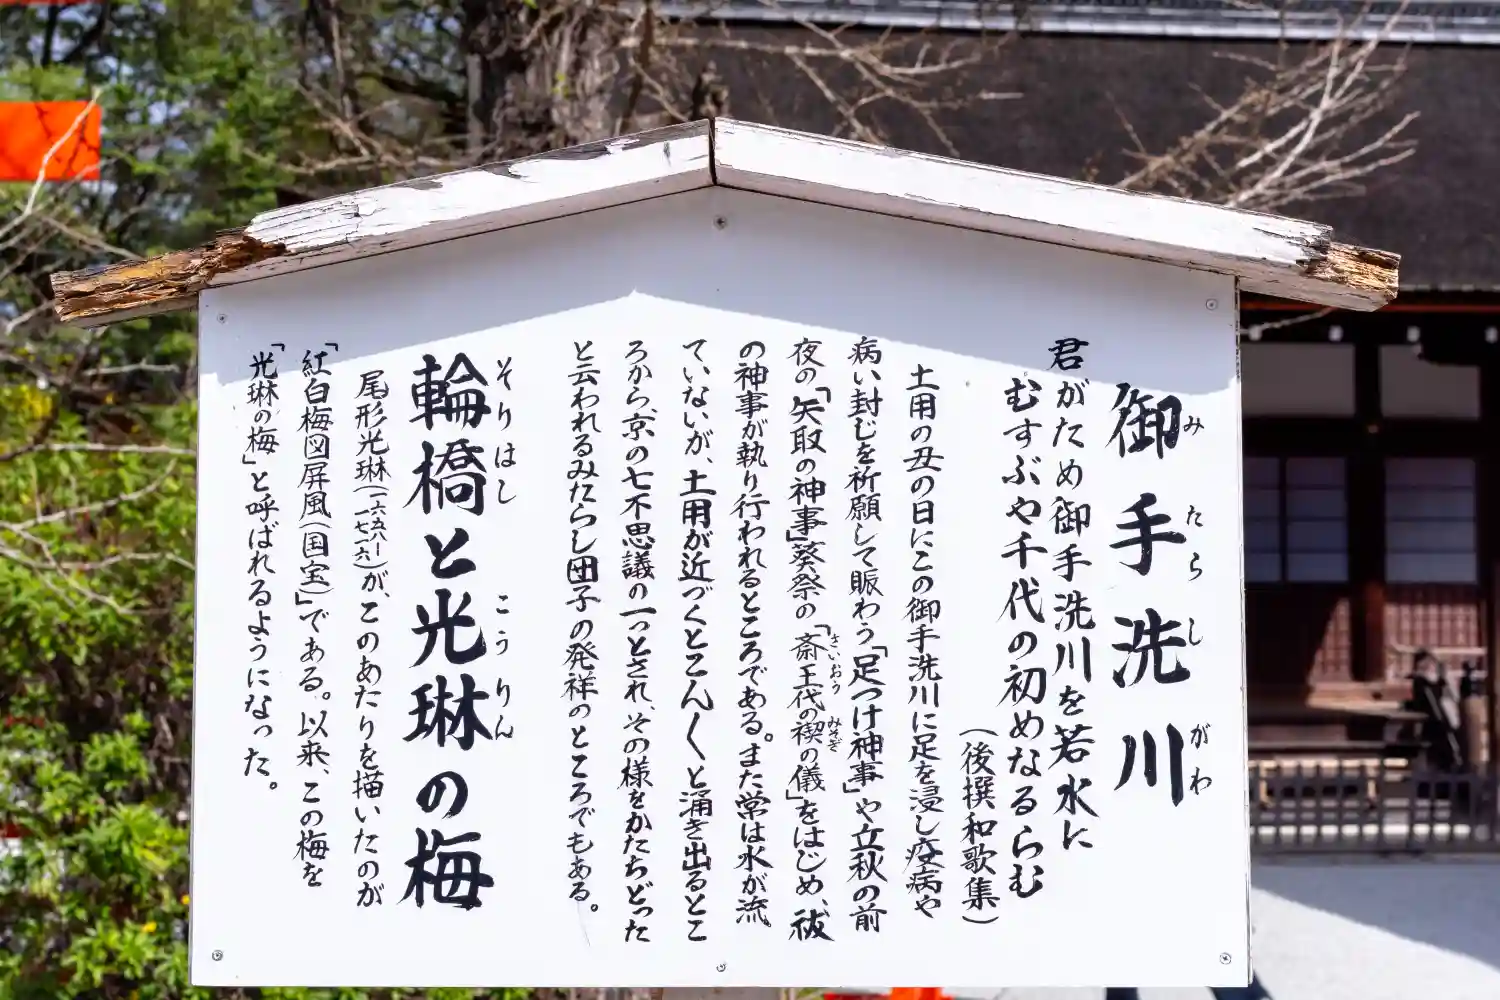 御手洗川
みたらしがわ
君がため御手洗川を若水に
むすぶや千代の初めなるらむ
(後撰和歌集)
土用の丑の日にこの御手洗川に足を浸し疫病や
病い封じを祈願して賑わう「足つけ神事」や立秋の前
夜の「矢取の神事」葵祭の「斎王代の禊の儀」をはじめ、祓
さいおう
みそぎ
の神事が執り行われるところである。また常は水が流れ
ていないが、土用が近づくとこんこんと涌き出るとこ
ろから、京の七不思議の一つとされ、その様をかたちどった
と云われるみたらし団子の発祥のところでもある。
輪橋と光琳の梅
そりはし
こうりん
尾形光琳(一六五八ー一七一六)が、このあたりを描いたのが
「紅白梅図屏風(国宝)」である。以来、この梅を
「光琳の梅」と呼ばれるようになった。